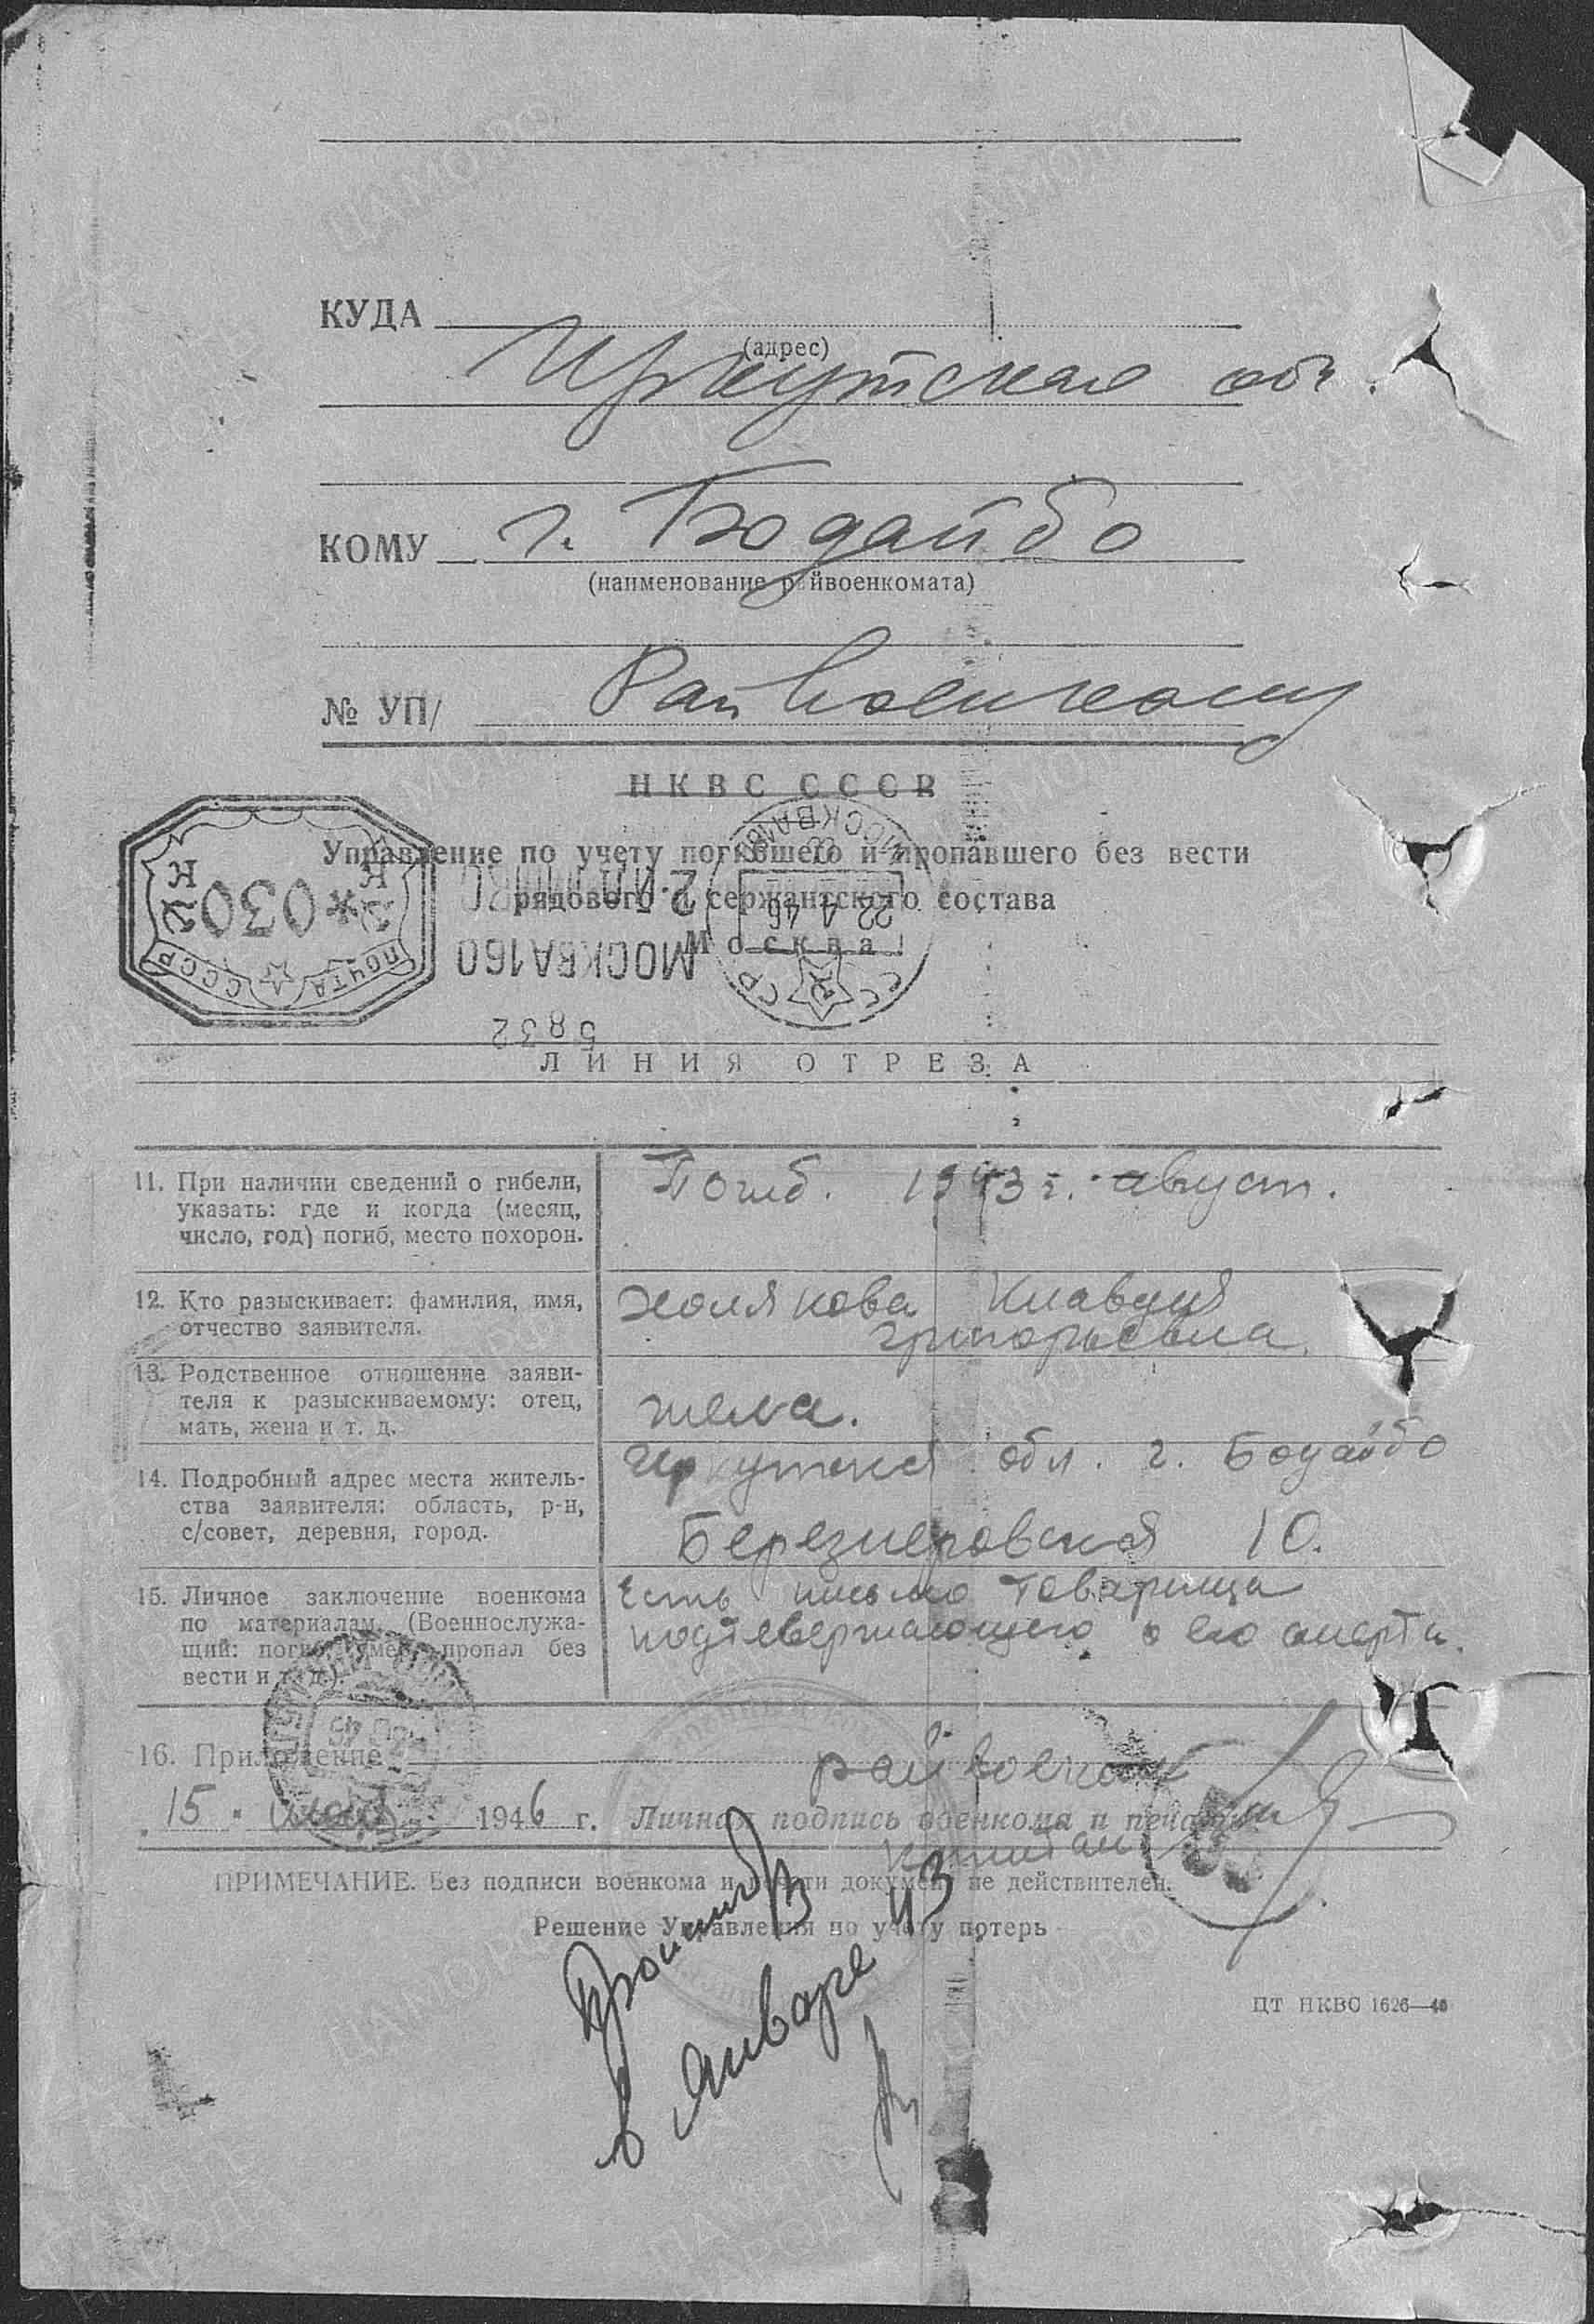 КУДА
(адрес)
Иркутская обл.
КОМУ г. Бодайбо
(наименование райвоенкомата)
№ УП/ Райвоенкому
НКВС СССР
Управление по учету погибшего и пропавшего без вести
рядового и сержантского состава
Москва
ПОЧТА СССР
*030
МОСКВА160
МОСКВА160
22 4 46
СССР
5832
ЛИНИЯ ОТРЕЗА
11. При наличии сведений о гибели,
указать: где и когда (месяц,
число, год) погиб, место похорон.
Погиб. 1943 г. август.
12. Кто разыскивает: фамилия, имя,
отчество заявителя.
Холякова Клавдия
Григорьевна.
13. Родственное отношение заяви-
теля к разыскиваемому: отец,
мать, жена и т. д.
жена.
14. Подробный адрес места житель-
ства заявителя: область, р-н,
с/совет, деревня, город.
Иркутская обл. г. Бодайбо
10.
15. Личное заключение военкома
по материалам. (Военнослужа-
щий: погиб, умер, пропал без
вести и т. д.).
Есть письмо товарища
подтвержающего о его смерти.
16. Приложение
райвоенком
15. 1946 г. Личная подпись военкома и печать
капитан
ПРИМЕЧАНИЕ. Без подписи военкома и печати документ не действителен.
Решение Управления по учету потерь
в январе 43
ЦТ НКВС 1626—46